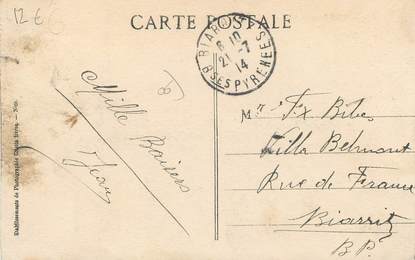 12€
CARTE POSTALE
BIARRITZ
8 10
21 - 7
14
BSES PYRENEES
Mille Baisers
Jean
Mr Fx Bibes
Villa Belmont
Rue de France
Biarritz
B.P.
Établissements de Photographie Giletta frères. - Nice.